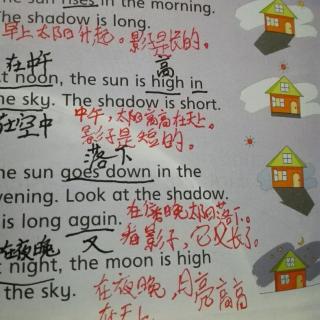 he sun rises in the morning.
The shadow is long.
早上太阳升起。影子是长的。
在中午
高
t noon, the sun is high in
he sky. The shadow is short.
在空中
中午，太阳高高在天上。
影子是短的。
落下
he sun goes down in the
vening. Look at the shadow.
is long again.
在傍晚太阳落下。
看影子，它又长了。
在夜晚
又
t night, the moon is high
the sky.
在夜晚，月亮高高
在天上